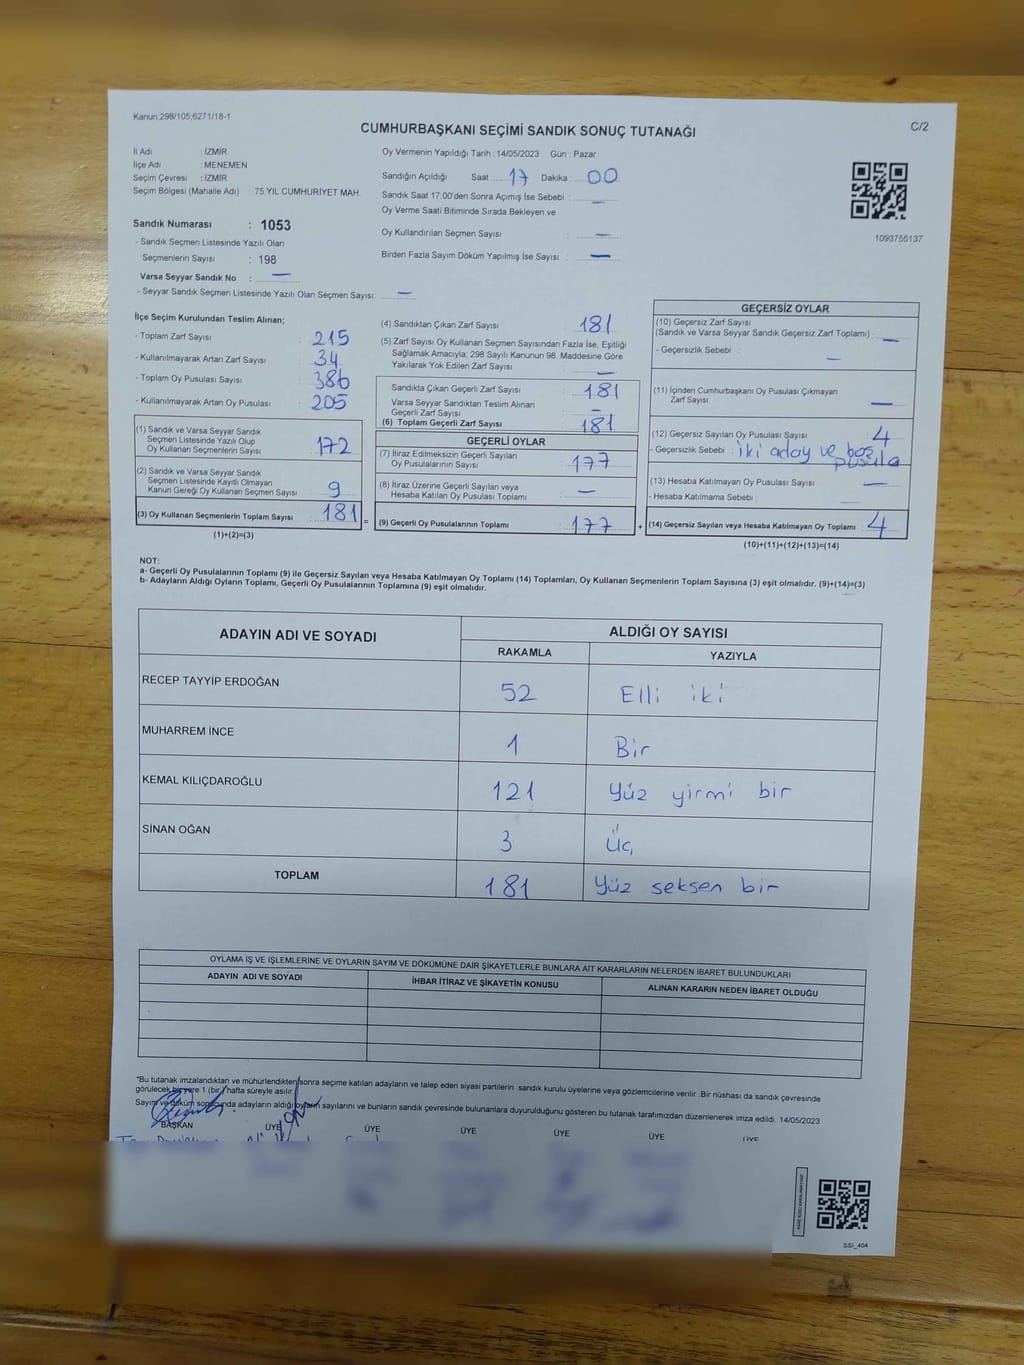 Kanun;298/105;6271/18-1
CUMHURBAŞKANI SEÇİMİ SANDIK SONUÇ TUTANAĞI
C/2
İl Adı : İZMİR
İlçe Adı : MENEMEN
Seçim Çevresi : İZMİR
Seçim Bölgesi (Mahalle Adı) : 75 YIL CUMHURİYET MAH.
Sandık Numarası : 1053
- Sandık Seçmen Listesinde Yazılı Olan
Seçmenlerin Sayısı : 198
Varsa Seyyar Sandık No : —
- Seyyar Sandık Seçmen Listesinde Yazılı Olan Seçmen Sayısı: —
Oy Vermenin Yapıldığı Tarih : 14/05/2023 Gün : Pazar
Sandığın Açıldığı Saat : 17 Dakika : 00
Sandık Saat 17:00'den Sonra Açımış İse Sebebi : —
Oy Verme Saati Bitiminde Sırada Bekleyen ve
Oy Kullandırılan Seçmen Sayısı : —
Birden Fazla Sayım Döküm Yapılmış İse Sayısı : —
1093756137
İlçe Seçim Kurulundan Teslim Alınan;
- Toplam Zarf Sayısı : 215
- Kullanılmayarak Artan Zarf Sayısı : 34
- Toplam Oy Pusulası Sayısı : 386
- Kullanılmayarak Artan Oy Pusulası : 205
(1) Sandık ve Varsa Seyyar Sandık
Seçmen Listesinde Yazılı Olup
Oy Kullanan Seçmenlerin Sayısı : 172
(2) Sandık ve Varsa Seyyar Sandık
Seçmen Listesinde Kayıtlı Olmayan
Kanun Gereği Oy Kullanan Seçmen Sayısı : 9
(3) Oy Kullanan Seçmenlerin Toplam Sayısı : 181 =
(1)+(2)=(3)
(4) Sandıktan Çıkan Zarf Sayısı : 181
(5) Zarf Sayısı Oy Kullanan Seçmen Sayısından Fazla İse, Eşitliği
Sağlamak Amacıyla; 298 Sayılı Kanunun 98. Maddesine Göre
Yakılarak Yok Edilen Zarf Sayısı : —
Sandıkta Çıkan Geçerli Zarf Sayısı : 181
Varsa Seyyar Sandıktan Teslim Alınan
Geçerli Zarf Sayısı : —
(6) Toplam Geçerli Zarf Sayısı : 181
GEÇERLİ OYLAR
(7) İtiraz Edilmeksizin Geçerli Sayılan
Oy Pusulalarının Sayısı : 177
(8) İtiraz Üzerine Geçerli Sayılan veya
Hesaba Katılan Oy Pusulası Toplamı : —
(9) Geçerli Oy Pusulalarının Toplamı : 177 +
GEÇERSİZ OYLAR
(10) Geçersiz Zarf Sayısı
(Sandık ve Varsa Seyyar Sandık Geçersiz Zarf Toplamı) : —
- Geçersizlik Sebebi : —
(11) İçinden Cumhurbaşkanı Oy Pusulası Çıkmayan
Zarf Sayısı : —
(12) Geçersiz Sayılan Oy Pusulası Sayısı : 4
- Geçersizlik Sebebi : iki aday ve boş
pusula
(13) Hesaba Katılmayan Oy Pusulası Sayısı : —
- Hesaba Katılmama Sebebi :
(14) Geçersiz Sayılan veya Hesaba Katılmayan Oy Toplamı : 4
(10)+(11)+(12)+(13)=(14)
NOT:
a- Geçerli Oy Pusulalarının Toplamı (9) ile Geçersiz Sayılan veya Hesaba Katılmayan Oy Toplamı (14) Toplamları, Oy Kullanan Seçmenlerin Toplam Sayısına (3) eşit olmalıdır. (9)+(14)=(3)
b- Adayların Aldığı Oyların Toplamı, Geçerli Oy Pusulalarının Toplamına (9) eşit olmalıdır.
ADAYIN ADI VE SOYADI ALDIĞI OY SAYISI
RAKAMLA YAZIYLA
RECEP TAYYİP ERDOĞAN 52 Elli iki
MUHARREM İNCE 1 Bir
KEMAL KILIÇDAROĞLU 121 Yüz yirmi bir
SİNAN OĞAN 3 Üç
TOPLAM 181 Yüz seksen bir
OYLAMA İŞ VE İŞLEMLERİNE VE OYLARIN SAYIM VE DÖKÜMÜNE DAİR ŞİKAYETLERLE BUNLARA AİT KARARLARIN NELERDEN İBARET BULUNDUKLARI
ADAYIN ADI VE SOYADI İHBAR İTİRAZ VE ŞİKAYETİN KONUSU ALINAN KARARIN NEDEN İBARET OLDUĞU
*Bu tutanak imzalandıktan ve mühürlendikten sonra seçime katılan adayların ve talep eden siyasi partilerin sandık kurulu üyelerine veya gözlemcilerine verilir. Bir nüshası da sandık çevresinde
görülecek bir yere 1 (bir) hafta süreyle asılır.
Sayım ve döküm sonucunda adayların aldığı oyların sayılarını ve bunların sandık çevresinde bulunanlara duyurulduğunu gösteren bu tutanak tarafımızdan düzenlenerek imza edildi. 14/05/2023
BAŞKAN ÜYE ÜYE ÜYE ÜYE ÜYE ÜYE
SSİ_404